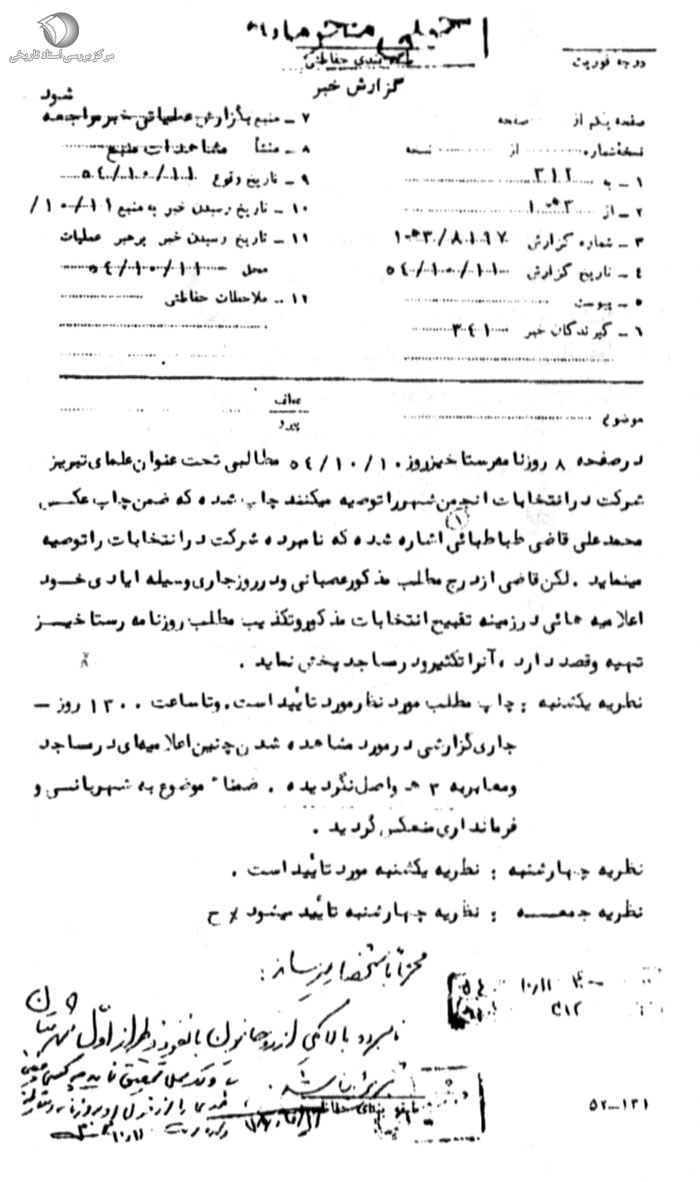 مرکز بررسی اسناد تاریخی
طبقه بندی حفاظتی
درجه فوریت
گزارش خبر
صفحه یکم از صفحه
نسخهٔ شماره از نسخه
۱ ـ به ۳۱۲
۲ ـ از ۱۰ ه‍ ۳
۳ ـ شماره گزارش ۱۰ ه‍ ۳/۸۱۹۷
۴ ـ تاریخ گزارش ۵۴/۱۰/۱۱
۵ ـ پیوست
۶ ـ گیرندگان خبر ۳۴۱
شود
۷ ـ منبع بگزارش عملیاتی خبر مراجعه
۸ ـ منشأ مشاهدات منبع
۹ ـ تاریخ وقوع ۵۴/۱۰/۱۱
۱۰ ـ تاریخ رسیدن خبر به منبع ۱۰/۱۱/
۱۱ ـ تاریخ رسیدن خبر برهبر عملیات
محل ۵۴/۱۰/۱۱
۱۲ ـ ملاحظات حفاظتی
موضوع
عطف
پیرو
در صفحه ۸ روزنامه رستاخیز روز ۵۴/۱۰/۱۰ مطالبی تحت عنوان علمای تبریز
شرکت در انتخابات انجمن شهر را توصیه میکنند چاپ شده که ضمن چاپ عکس
محمد علی قاضی طباطبائی (۱) اشاره شده که نامبرده شرکت در انتخابات را توصیه
مینماید . لکن قاضی از درج مطلب مذکور عصبانی و در روز جاری وسیله ایادی خود
اعلامیه هائی در زمینه تقبیح انتخابات مذکور و تکذیب مطلب روزنامه رستاخیز
تهیه و قصد دارد ، آنرا تکثیر و در مساجد پخش نماید .
نظریه یکشنبه : چاپ مطلب مورد نظر مورد تأیید است . و تا ساعت ۱۳۰۰ روز ـ
جاری گزارشی در مورد مشاهده شدن چنین اعلامیه‌ای در مساجد
و معابر به ۳ ه‍ واصل نگردیده . ضمناً موضوع به شهربانی و
فرمانداری منعکس گردید .
نظریه چهارشنبه : نظریه یکشنبه مورد تأیید است .
نظریه جمعه : نظریه چهارشنبه تأیید میشود / ح
نامبرده بالا یکی از روحانیون با نفوذ و طراز اول شهرستان
تبریز
طبقه بندی حفاظتی
۵۲ـ۱۳۱